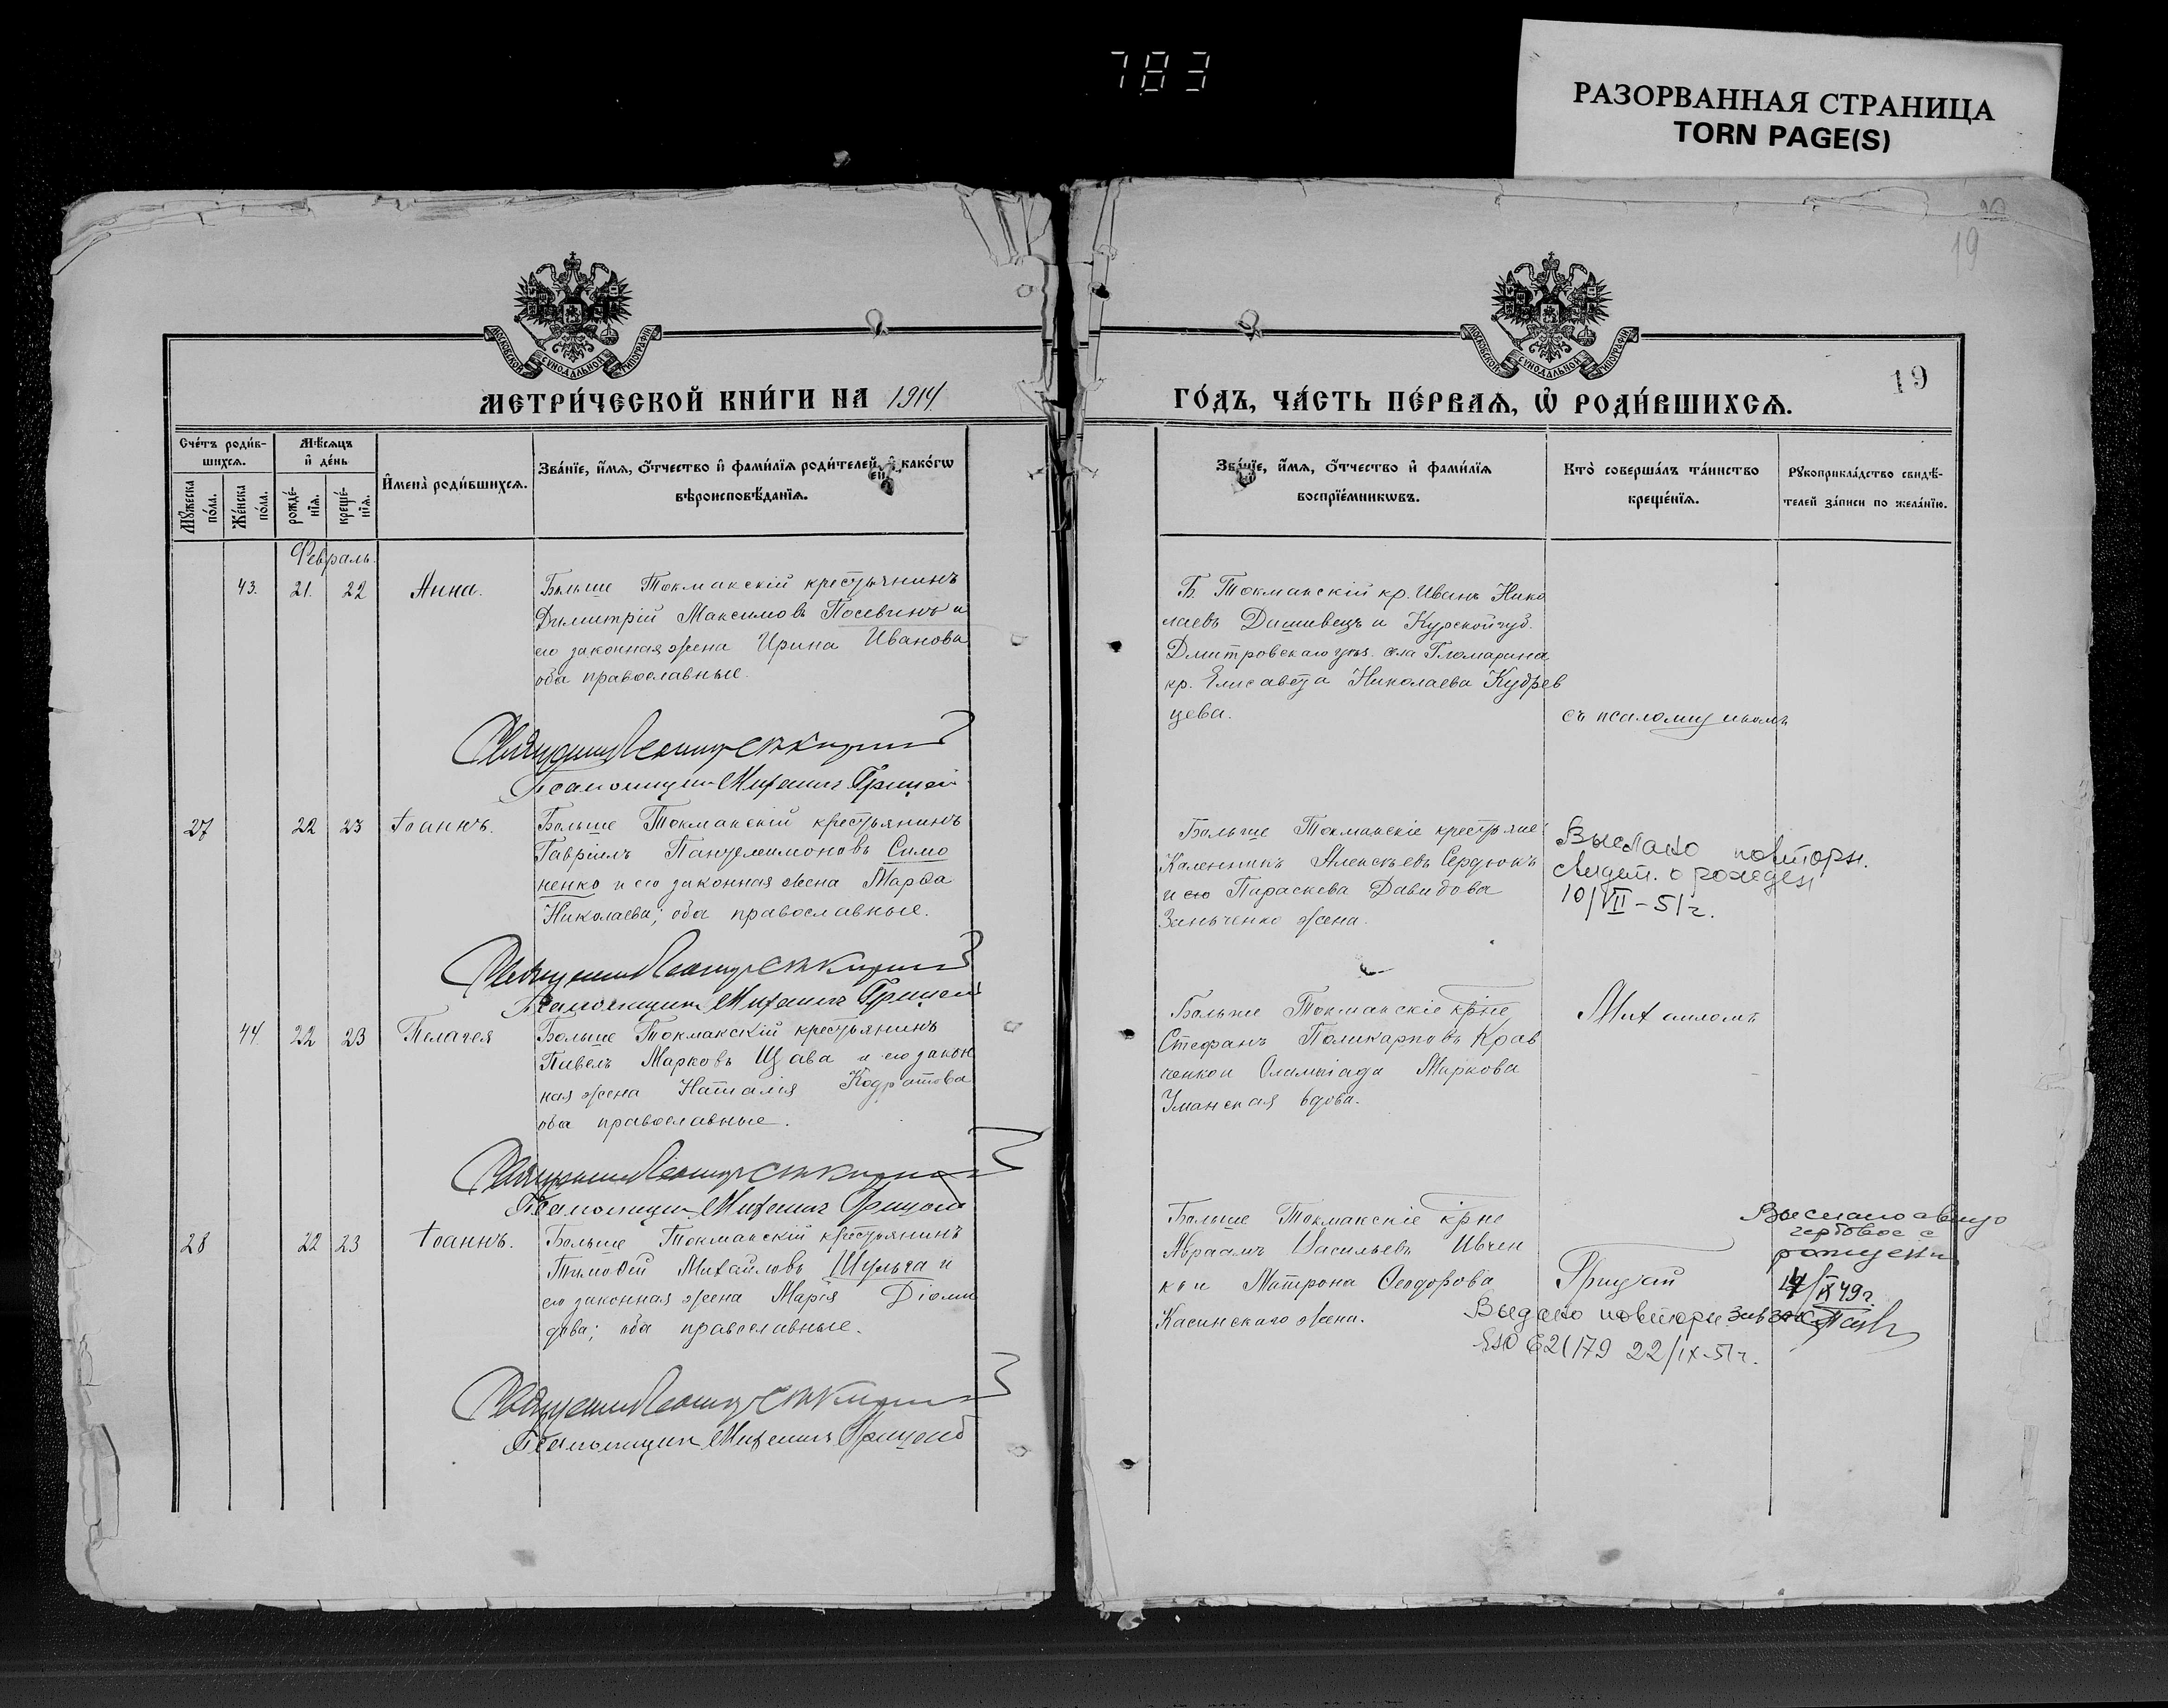 783
РАЗОРВАННАЯ СТРАНИЦА
TORN PAGE(S)
19
19
МОСКОВСКОЙ СУНОДАЛЬНОЙ ТИПОГРАФІИ
МОСКОВСКОЙ СУНОДАЛЬНОЙ ТИПОГРАФІИ
МЕТРИ́ЧЕСКОЙ КНИ́ГИ НА 1914.
ГО́ДЪ, ЧА́СТЬ ПЕ́РВАѦ, Ѡ҆ РОДИ́ВШИХСѦ.
Сче́тъ роди́в-
шихсѧ.
Мѣ́сѧцъ
и҆ де́нь
Мꙋ́жеска
по́ла.
Же́нска
по́ла.
рожде́-
нїѧ.
креще́-
нїѧ.
И҆мена̀ роди́вшихсѧ.
Зва́нїе, и҆́мѧ, ѻ҆́тчество и҆ фами́лїѧ роди́телей, и҆ како́гѡ
вѣроисповѣ́данїѧ.
Зва́нїе, и҆́мѧ, ѻ҆́тчество и҆ фами́лїѧ
воспрїе́мникѡвъ.
Кто̀ соверша́лъ та́инство
креще́нїѧ.
Рꙋкоприкла́дство свидѣ́-
телей за́писи по жела́нїю.
Февраль.
43. 21. 22 Анна. Больше Токмакскій крестьянинъ
Димитрій Максимовъ Посевинъ и
его законная жена Ирина Иванова
оба православные.
Б. Токмакскій кр. Иванъ Нико
лаевъ Дашивецъ и Курской губ.
Дмитровскаго уѣз. села
кр. Елисавета Николаева Кудрев
цева.
съ псаломщикомъ
Псаломщикъ Михаилъ Грицай
27 22 23 Іоаннъ. Больше Токмакскій крестьянинъ
Гавріилъ Пантелеимоновъ Симо
ненко и его законная жена Марѳа
Николаева; оба православные.
Больше Токмакскіе крестьяне:
Каленникъ Алексѣевъ Сердюкъ
и Параскева Давидова
Заньченко жена.
Выслано повторн.
свидет. о рожден
10/VII-51г.
Псаломщикъ Михаилъ Грицай
44 22 23 Пелагея Больше Токмакскій крестьянинъ
Павелъ Марковъ Щава и его закон
ная жена Наталія Кодратова
оба православные.
Больше Токмакскіе кр-не
Стефанъ Поликарповъ Крав
ченко и Олимпіада Маркова
Уманская вдова.
Михаиломъ
Псаломщикъ Михаилъ Грицай
28 22 23 Іоаннъ. Больше Токмакскій крестьянинъ
Тимоѳій Михайловъ Шульга и
его законная жена Марія Діоми
дова; оба православные.
Больше Токмакскіе кр-не
Авраамъ Васильевъ Ивчен
ко и Матрона Ѳеодорова
Касинскаго жена.
Грицай
Выслано
гербовое с
14/IX 49г.
Выдано повторн.
22/IX-51г.
Псаломщикъ Михаилъ Грицай